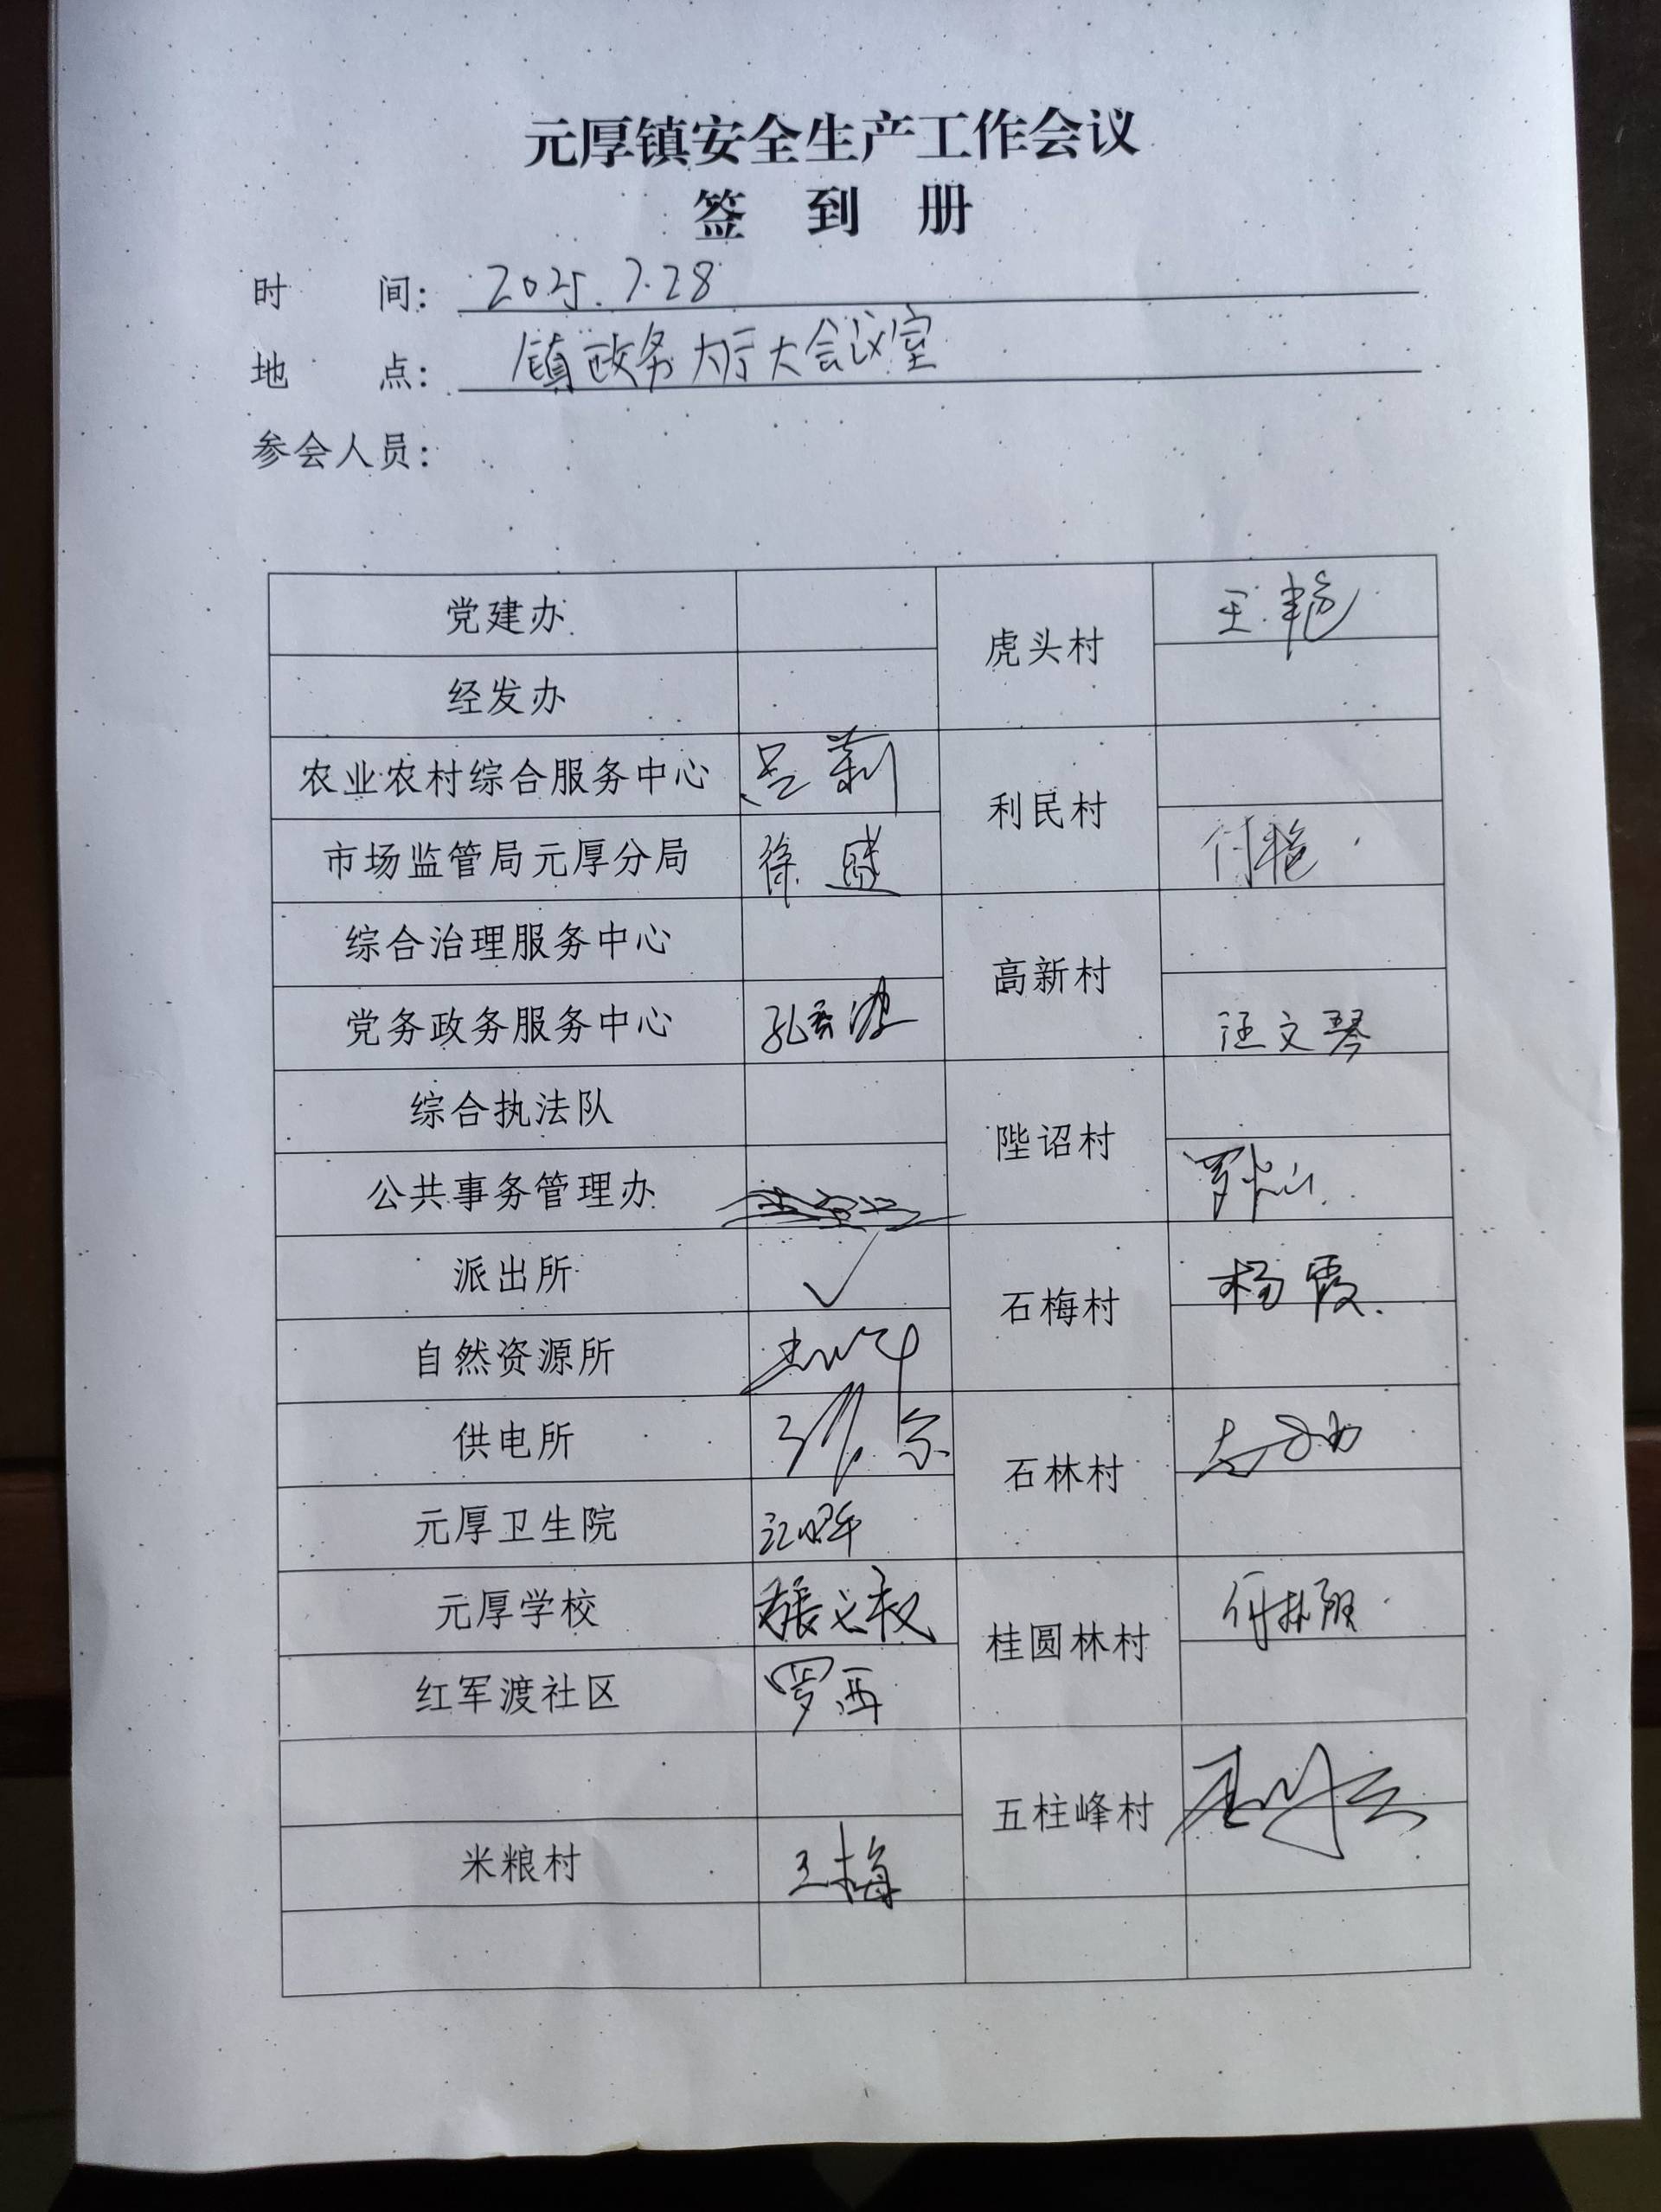 元厚镇安全生产工作会议
签 到 册
时 间: 2025.7.28
地 点: 镇政务大厅大会议室
参会人员:
党建办 虎头村 王艳
经发办
农业农村综合服务中心 吕莉 利民村
市场监管局元厚分局 徐盛 付艳
综合治理服务中心 高新村
党务政务服务中心 汪文琴
综合执法队 陛诏村
公共事务管理办
派出所 ✓ 石梅村 杨霞
自然资源所
供电所 石林村
元厚卫生院
元厚学校 桂圆林村
红军渡社区 罗西
五柱峰村
米粮村 王梅